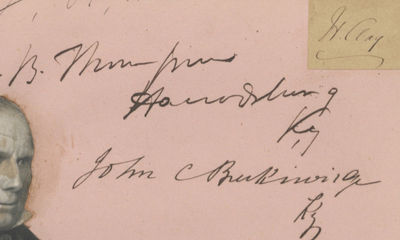 H Clay
B. Thompson
Harrodsburg
Ky
John C Breckinridge
Ky